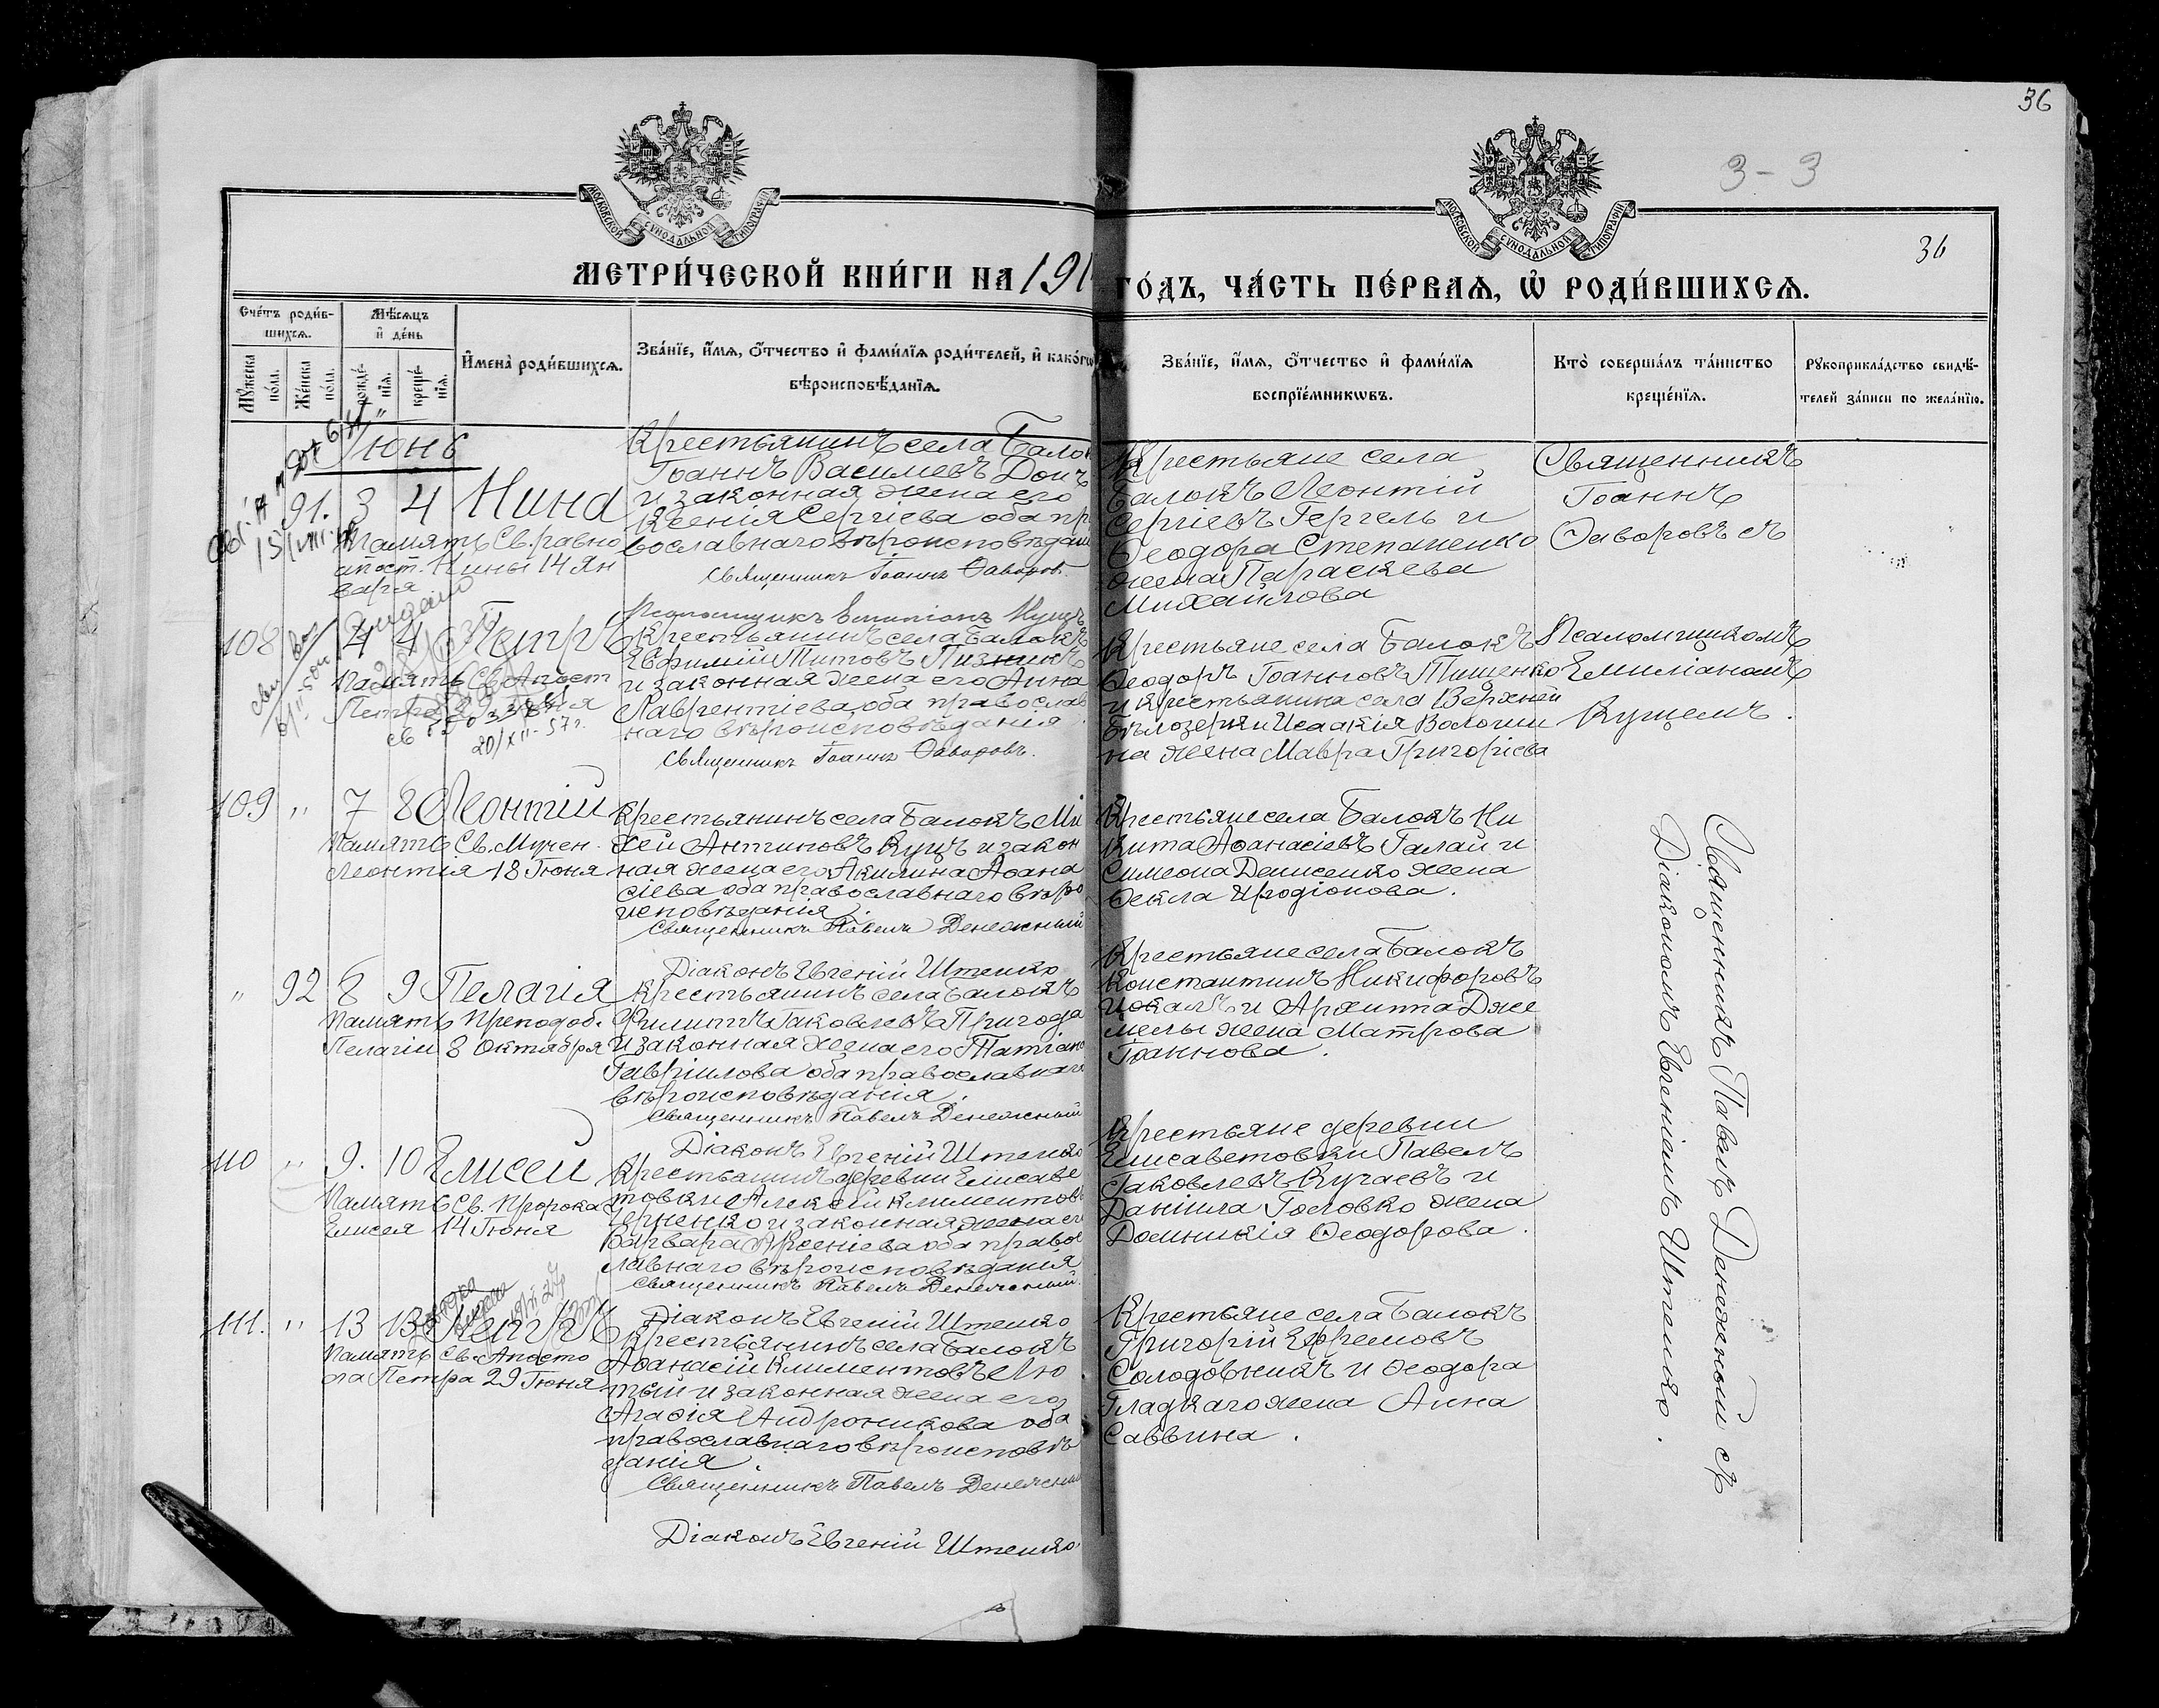 36
3-3
36
МОСКОВСКОЙ СѴНОДАЛЬНОЙ ТИПОГРАФІИ
МОСКОВСКОЙ СѴНОДАЛЬНОЙ ТИПОГРАФІИ
МЕТРИ́ЧЕСКОЙ КНИ́ГИ НА 191
ГО́ДЪ, ЧА́СТЬ ПЕ́РВАЯ, Ѡ҆ РОДИ́ВШИХСЯ.
Сче́тъ роди́в-
шихся.
Мꙋ́жеска по́ла.
Же́нска по́ла.
Мѣ́сяцъ
и҆ де́нь
рожде́-
нїя.
креще́-
нїя.
И҆мена̀ роди́вшихся.
Зва́нїе, и҆́мя, ѻ҆́тчество и҆ фами́лїя роди́телей, и҆ како́гѡ
вѣроисповѣ́данїя.
Зва́нїе, и҆́мя, ѻ҆́тчество и҆ фами́лїя
воспрїе́мникѡвъ.
Кто̀ соверша́лъ та́инство
креще́нїя.
Рꙋкоприкла́дство свидѣ́-
телей за́писи по жела́нїю.
Іюнь
91. 3 4 Нина
Память Св. равно
апост. Нины 14 Ян
варя
Крестьянинъ села Балок
Іоаннъ Василіевъ Доич
и законная жена его
Ксенія Сергіева оба пр
вославнаго вѣроисповѣдан
Священникъ Іоаннъ Ѳаворов.
Крестьяне села
Балокъ Леонтій
Сергіевъ Гергель и
Ѳеодора Степаненко
жена Параскева
Михайлова
Священникъ
Іоаннъ
Ѳаворовъ съ
Псаломщикъ Емиліанъ Куцъ
108 4 4 Петръ
Память Св. Апост
Петра 29 Іюня
20/XII-57г.
Крестьянинъ села Балокъ
Евфимій Титовъ Пизникъ
и законная жена его Анна
Лаврентіева оба православ
наго вѣроисповѣданія
Священникъ Іоаннъ Ѳаворовъ.
Крестьяне села Балокъ
Ѳеодоръ Іоанновъ Тищенко
и крестьянина села Верхней
Бѣлозерки Исаакія Волоши
на жена Мавра Григоріева
Псаломщикомъ
Емиліаномъ
Куцемъ.
109 " 7 8 Леонтій
Память Св. Мучен.
Леонтія 18 Іюня
Крестьянинъ села Балокъ Ми
хей Антиновъ Куцъ и закон
ная жена его Акилина Аѳана
сіева оба православнаго вѣро
исповѣданія.
Священникъ Павелъ Денежный
Діаконъ Евгеній Штенко
Крестьяне села Балокъ Ни
кита Аѳанасіевъ Галай и
Симеона Денисенко жена
Ѳекла Иродіонова.
" 92 8 9 Пелагія
Память Преподоб.
Пелагіи 8 Октября
Крестьянинъ села Балокъ
Филиппъ Іаковлевъ Пригода
и законная жена его Татіана
Гавріилова оба православнаго
вѣроисповѣданія.
Священникъ Павелъ Денежный
Діаконъ Евгеній Штенко
Крестьяне села Балокъ
Константинъ Никифоровъ
Цокалъ и Архиппа Дже
мелы жена Матрова
Іоаннова.
110 " 9. 10 Елисей
Память Св. Пророка
Елисея 14 Іюня
Крестьянинъ деревни Елисаве
товки Алексѣй Климентовъ
Черненко и законная жена его
Варвара Арсеніева оба правос
лавнаго вѣроисповѣданія
Священникъ Павелъ Денежный.
Діаконъ Евгеній Штенко
Крестьяне деревни
Елисаветовки Павелъ
Іаковлевъ Кучаевъ и
Даніила Головко жена
Домникія Ѳеодорова.
111. " 13 13 Петръ
Память Св. Апосто
ла Петра 29 Іюня
Крестьянинъ села Балокъ
Аѳанасій Климентовъ Лю
тый и законная жена его
Агафія Андроникова оба
православнаго вѣроисповѣ
данія.
Священникъ Павелъ Денежный
Діаконъ Евгеній Штенко
Крестьяне села Балокъ
Григорій Ефремовъ
Солодовникъ и Ѳеодора
Гладкаго жена Анна
Саввина.
Священникъ Павелъ Денежный съ
Діакономъ Евгеніемъ Штенко.